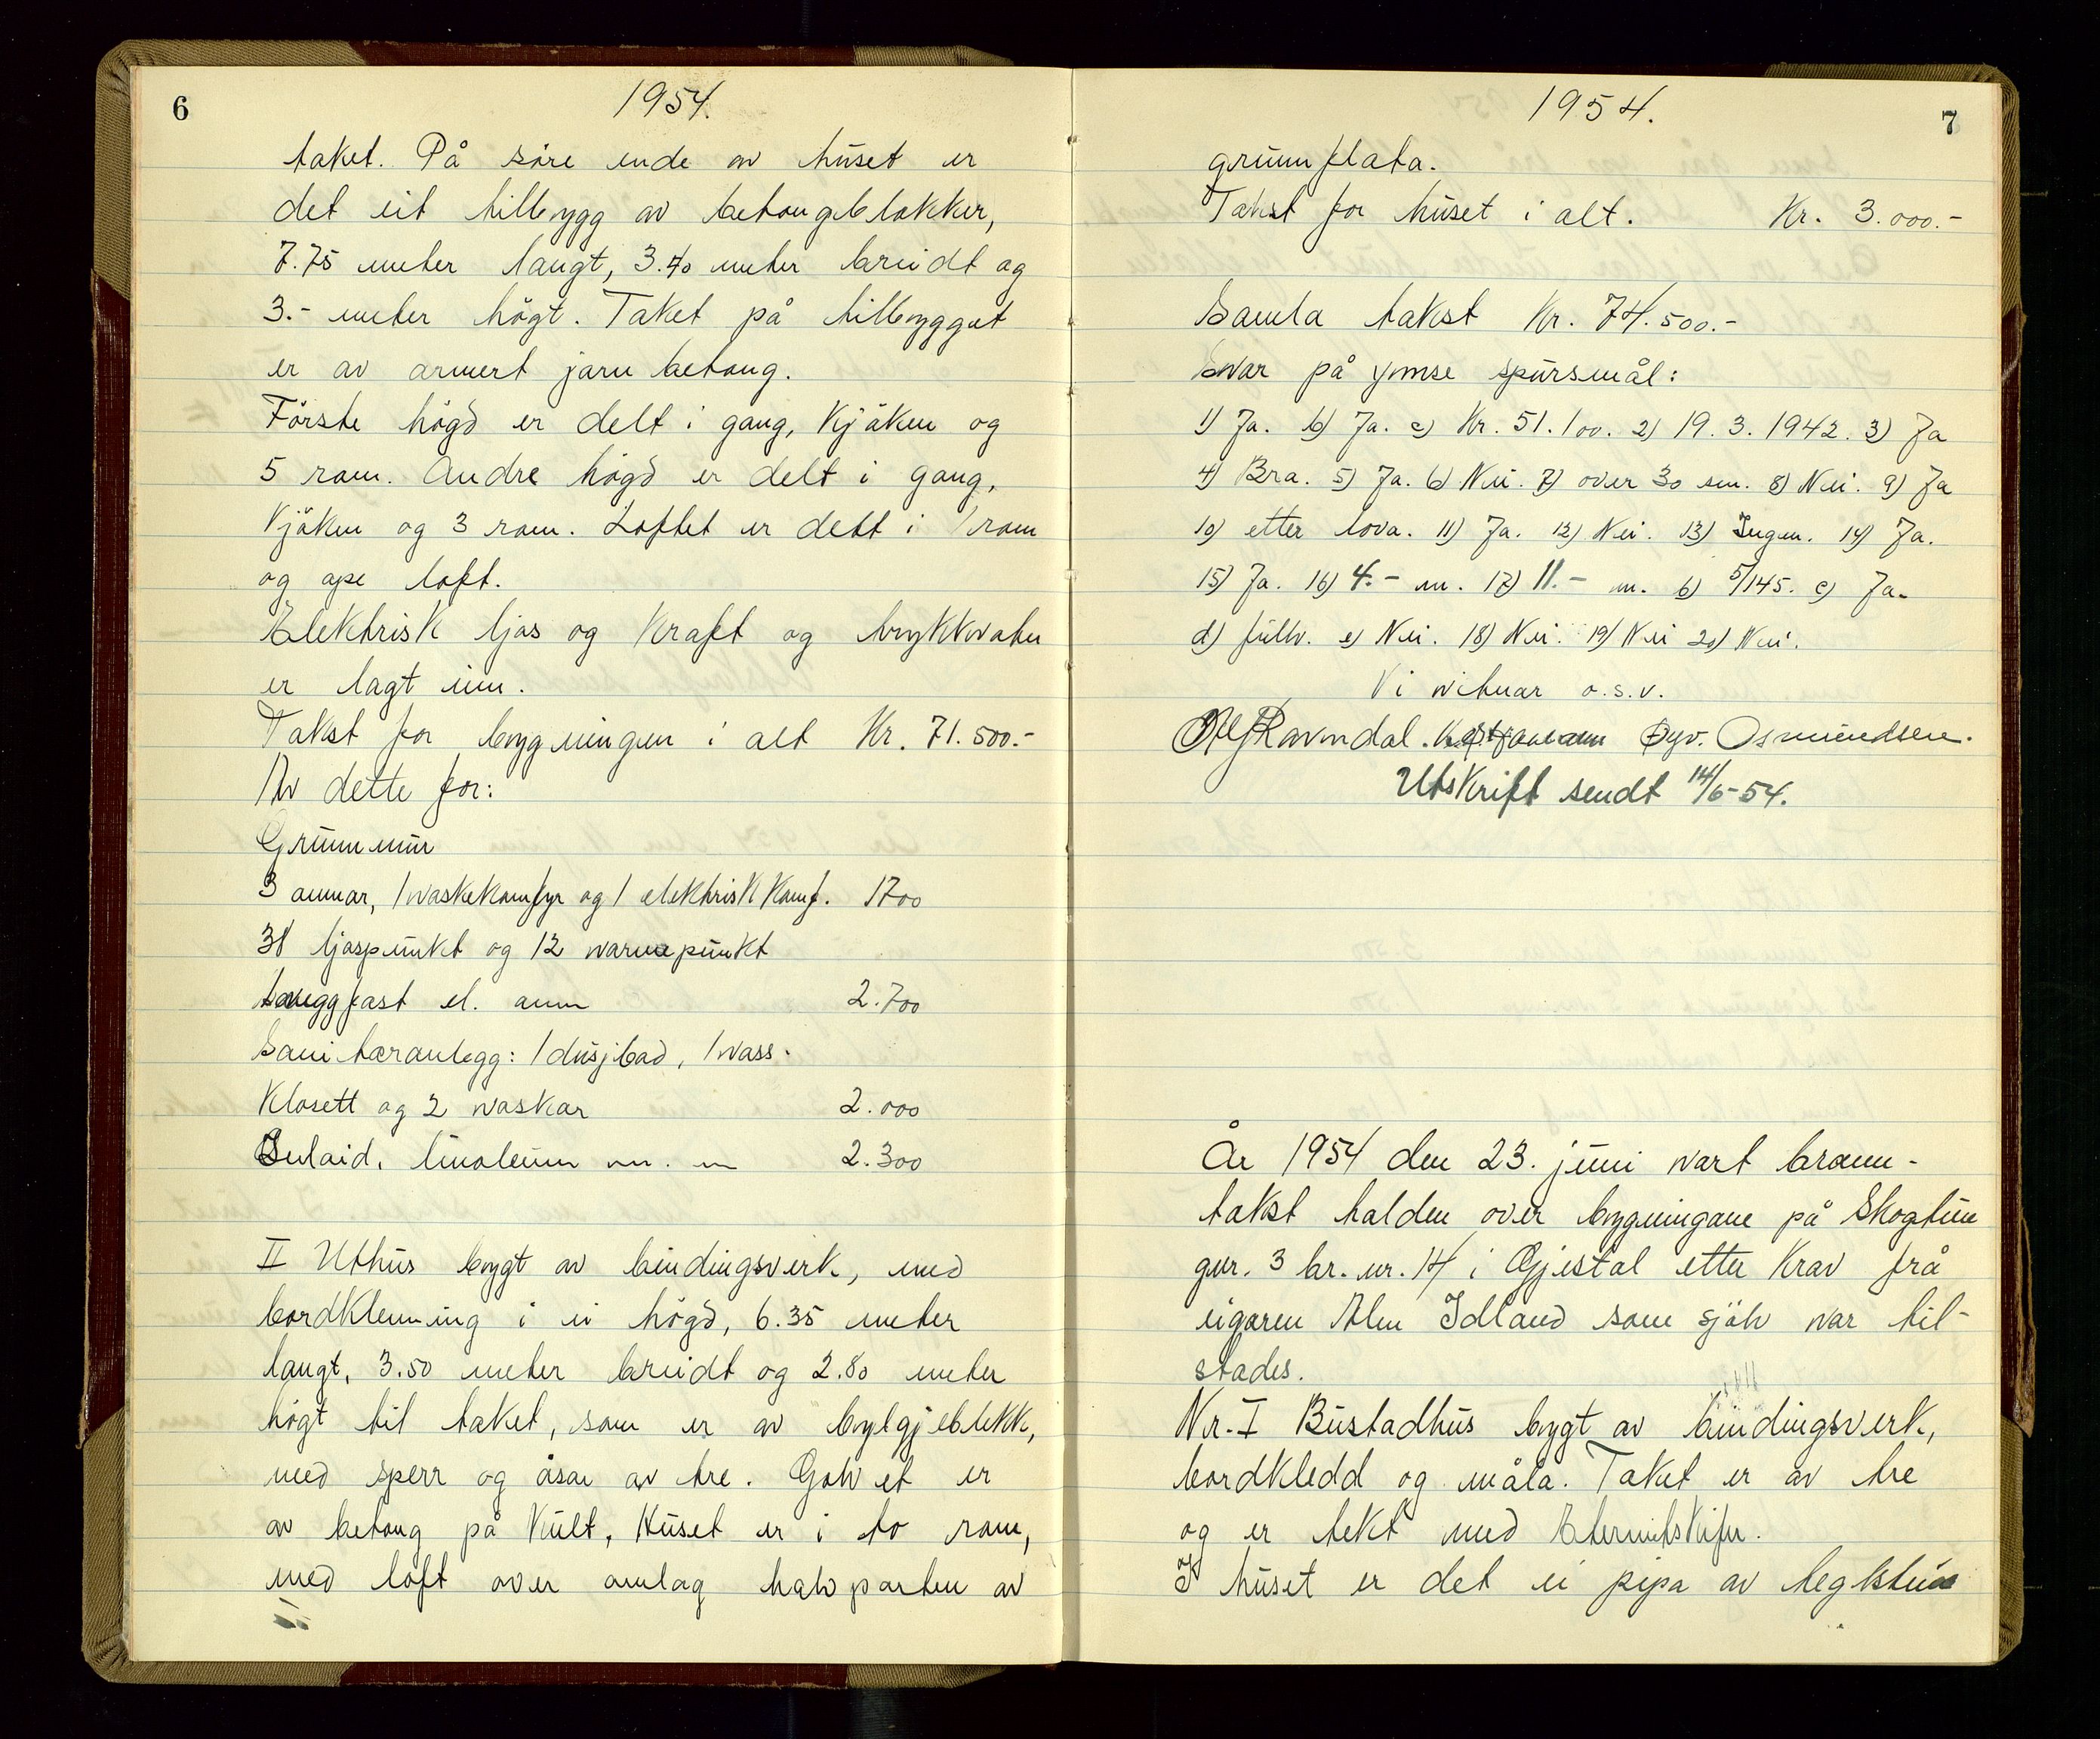 6
1954.
taket. På søre ende av huset er
det eit tilbygg av betongblokker,
7.75 meter langt, 3.70 meter breidt og
3.- meter högt. Taket på tilbygget
er av armert jarn betong.
Förste högd er delt i gang, kjöken og
5 rom. Andre högd er delt i gang,
kjöken og 3 rom. Loftet er delt i 1 rom
og ope loft.
Elektrisk ljos og kraft og trykkvatn
er lagt inn.
Takst for bygningen i alt Kr. 71.500.-
Av dette for:
Grunnmur
3 omnar, 1 vaskekomfyr og 1 elektrisk komf. 1700
38 ljospunkt og 12 varmepunkt
veggfast el. omn 2.700
Sanitæranlegg: 1 dusjbad, 1 vass-
klosett og 2 vaskar 2.000
Inlaid, linoleum m. m 2.300
II Uthus bygt av bindingsverk, med
bordkledning i ei högd, 6.35 meter
langt, 3.50 meter breidt og 2.80 meter
högt til taket, som er av bylgjeblekk,
med sperr og åsar av tre. Golvet er
av betong på kult, Huset er i to rom,
med loft over omlag halvparten av
7
1954.
grunnflata.
Takst for huset i alt. Kr. 3.000.-
Samla takst Kr. 74.500.-
Svar på ymse spursmål:
1) Ja. b) Ja. c) Kr. 51.100. 2) 19.3.1942. 3) Ja
4) Bra. 5) Ja. 6) Nei. 7) over 30 sm. 8) Nei. 9) Ja
10) etter lova. 11) Ja. 12) Nei. 13) Ingen. 14) Ja.
15) Ja. 16) 4.- m. 17) 11.- m. b) 5/145. c) Ja.
d) fullv. e) Nei. 18) Nei. 19) Nei 20) Nei.
Vi vitnar o.s.v.
Ravndal. Öyv. Osmundsen.
Utskrift sendt 14/6-54.
År 1954 den 23. juni vart brann-
takst halden over bygningane på Skogtun
gnr. 3 br. nr. 14 i Gjestal etter krav frå
eigaren Alm Idland som sjölv var til-
stades.
Nr. I Bustadhus bygt av bindingsverk,
bordkledd og måla. Taket er av tre
og er tekt med Eternitskifer.
I huset er det ei pipa av teglstein